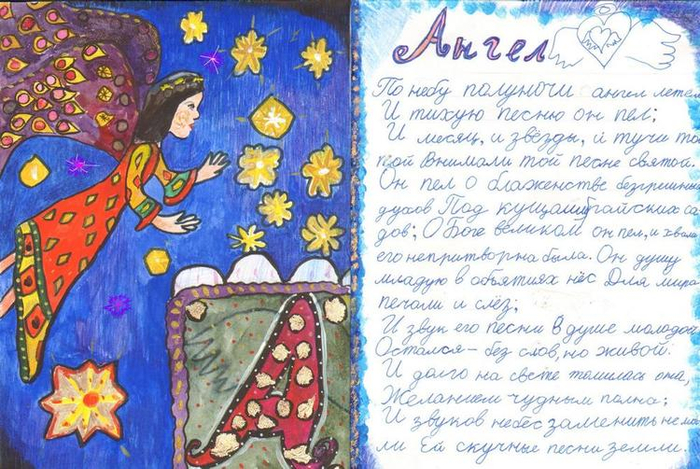 Ангел
По небу полуночи ангел летел
И тихую песню он пел;
И месяц, и звёзды, и тучи тол
пой Внимали той песне святой.
Он пел о блаженстве безгрешных
духов Под кущами райских са
дов; О Боге великом он пел, и хвала
его непритворна была. Он душу
младую в объятиях нёс Для мира
печали и слёз;
И звук его песни в душе молодой
Остался - без слов, но живой.
И долго на свете томилась она,
Желанием чудным полна;
И звуков небес заменить не мог
ли Ей скучные песни земли.
А